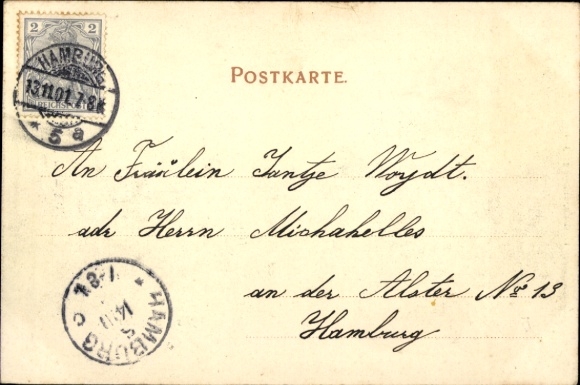 2 2
REICHSPOST
HAMBURG 1
13.11.01. 7-8 N
* 5 a
POSTKARTE.
An Fräulein Jantje Woydt.
adr Herrn Michahelles
an der Alster No 13
Hamburg
HAMBURG